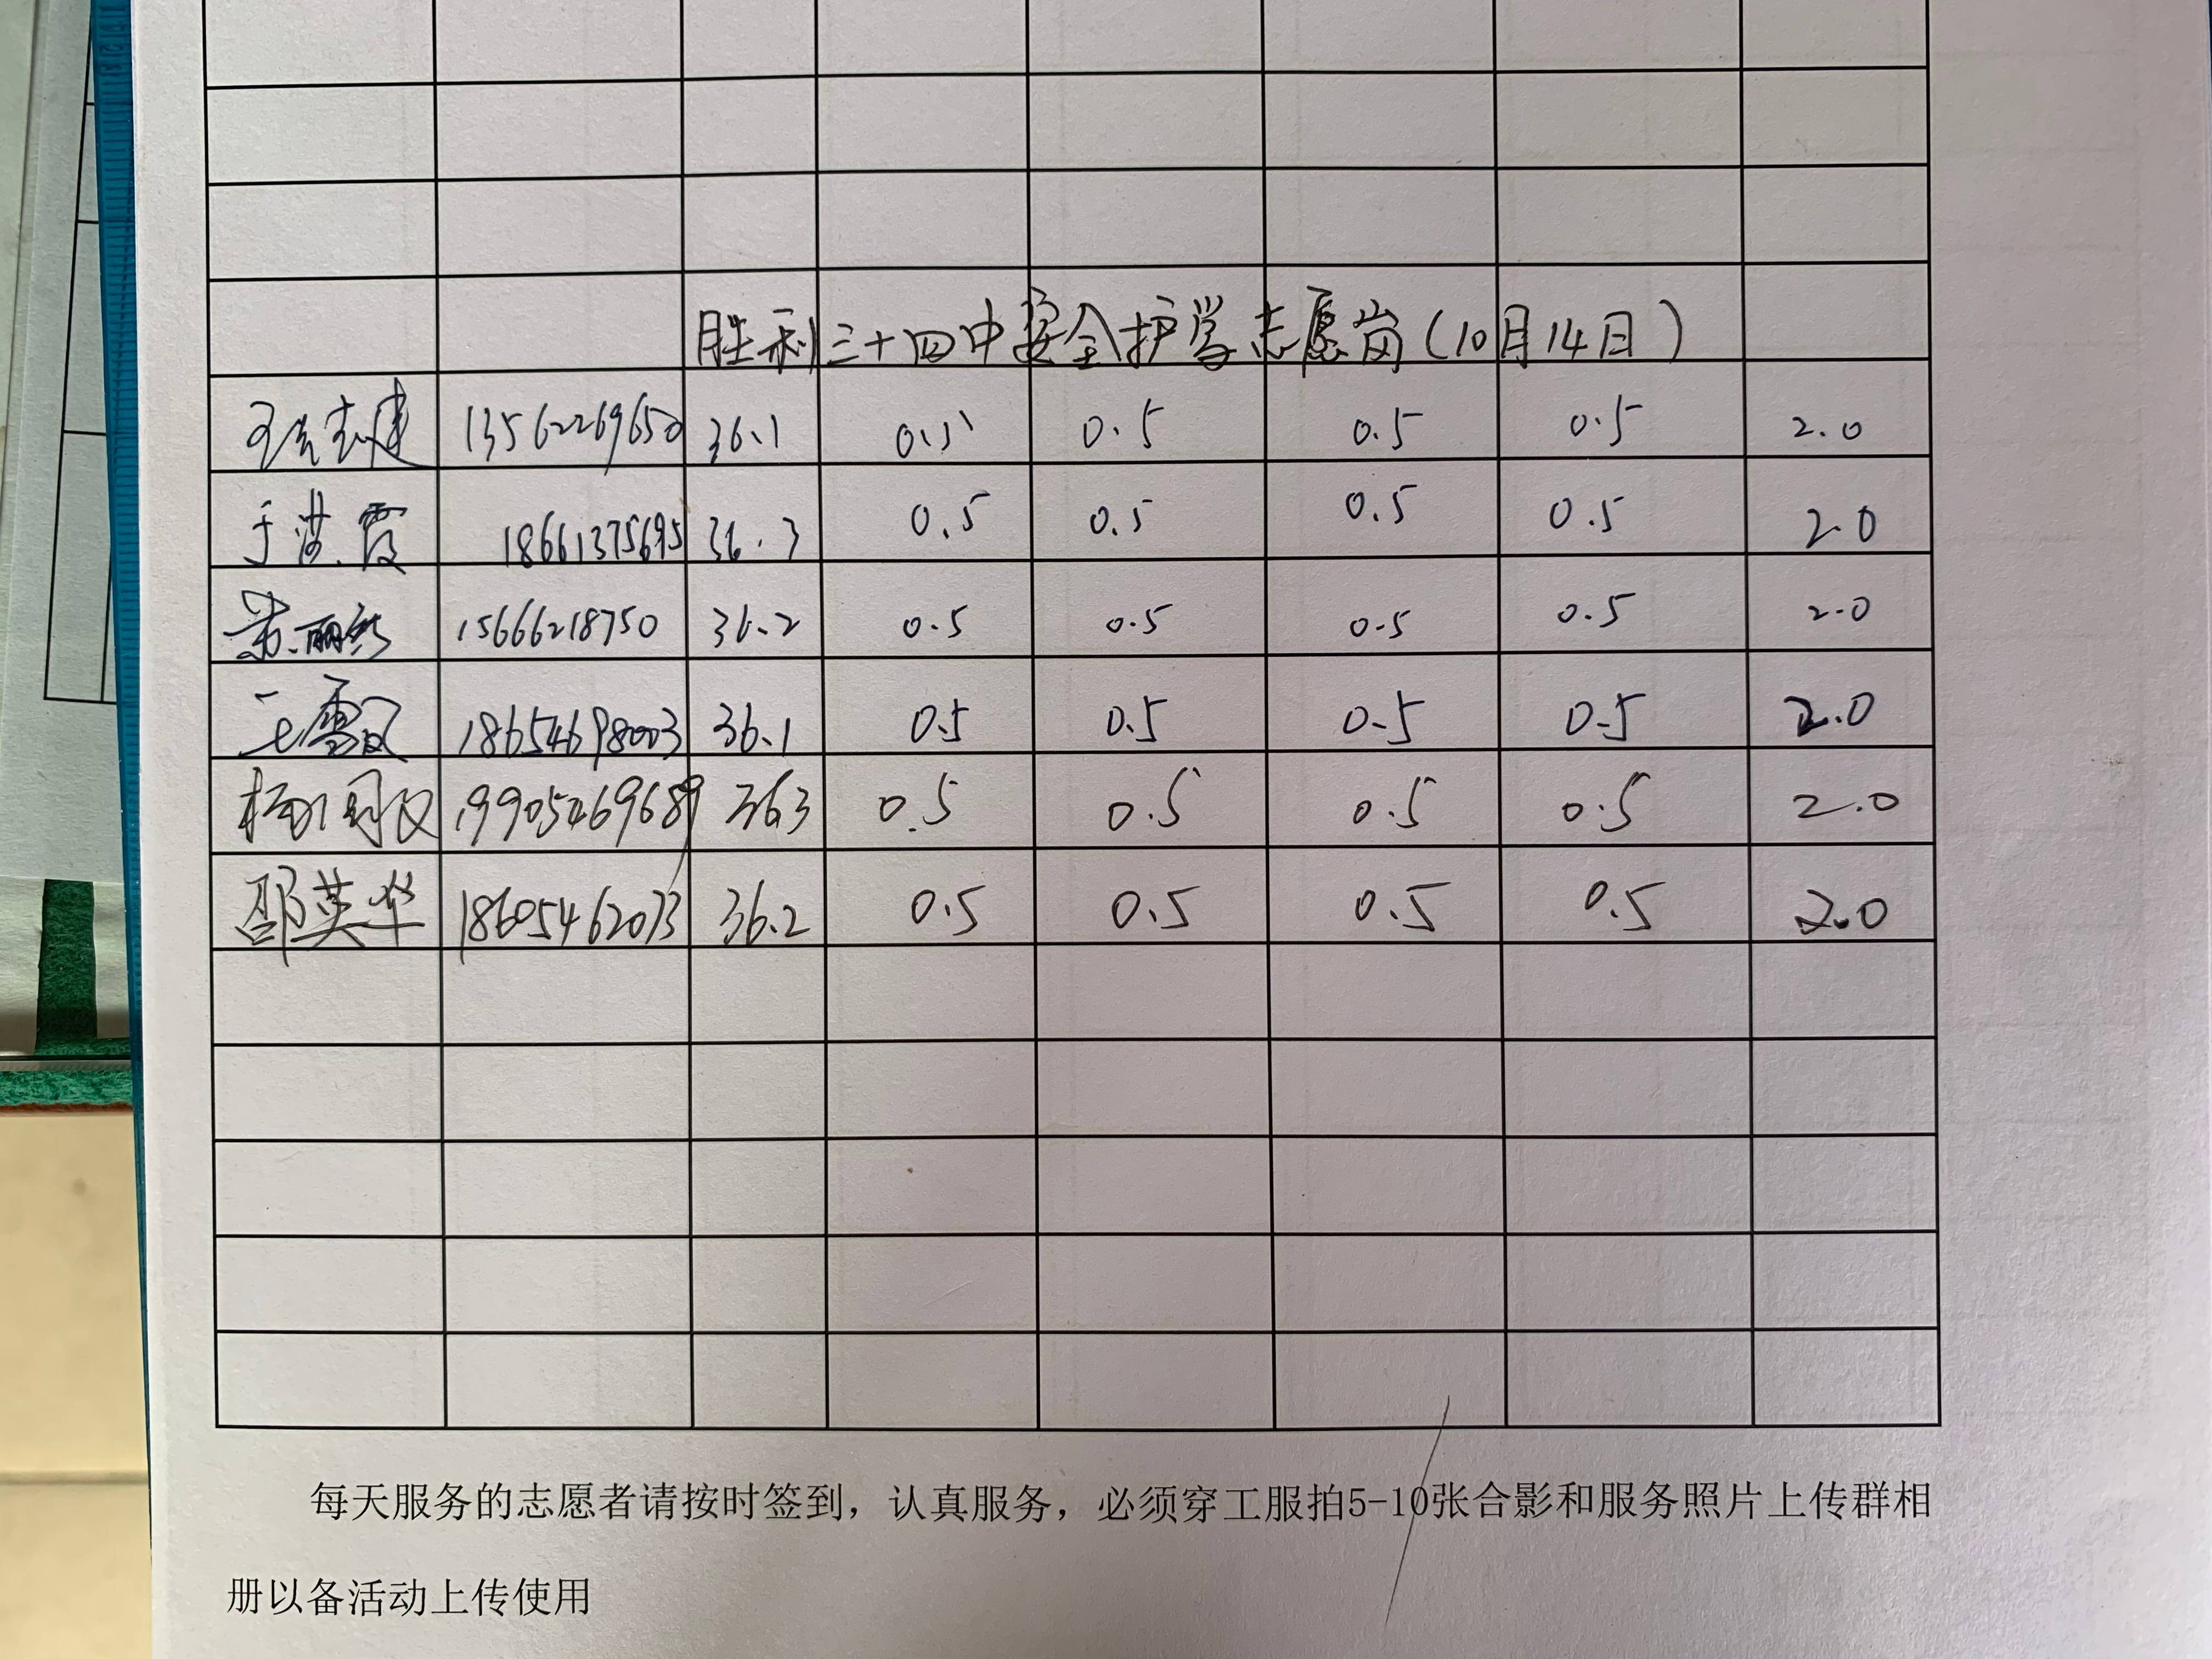 胜利三十四中安全护学志愿岗(10月14日)
建 13562269650 36.1 0.5 0.5 0.5 0.5 2.0
于 霞 18661375695 36.3 0.5 0.5 0.5 0.5 2.0
丽 15666218750 36.2 0.5 0.5 0.5 0.5 2.0
王雪 18654698003 36.1 0.5 0.5 0.5 0.5 2.0
杨 19905469689 36.3 0.5 0.5 0.5 0.5 2.0
邵英华 18605462073 36.2 0.5 0.5 0.5 0.5 2.0
每天服务的志愿者请按时签到，认真服务，必须穿工服拍5-10张合影和服务照片上传群相
册以备活动上传使用